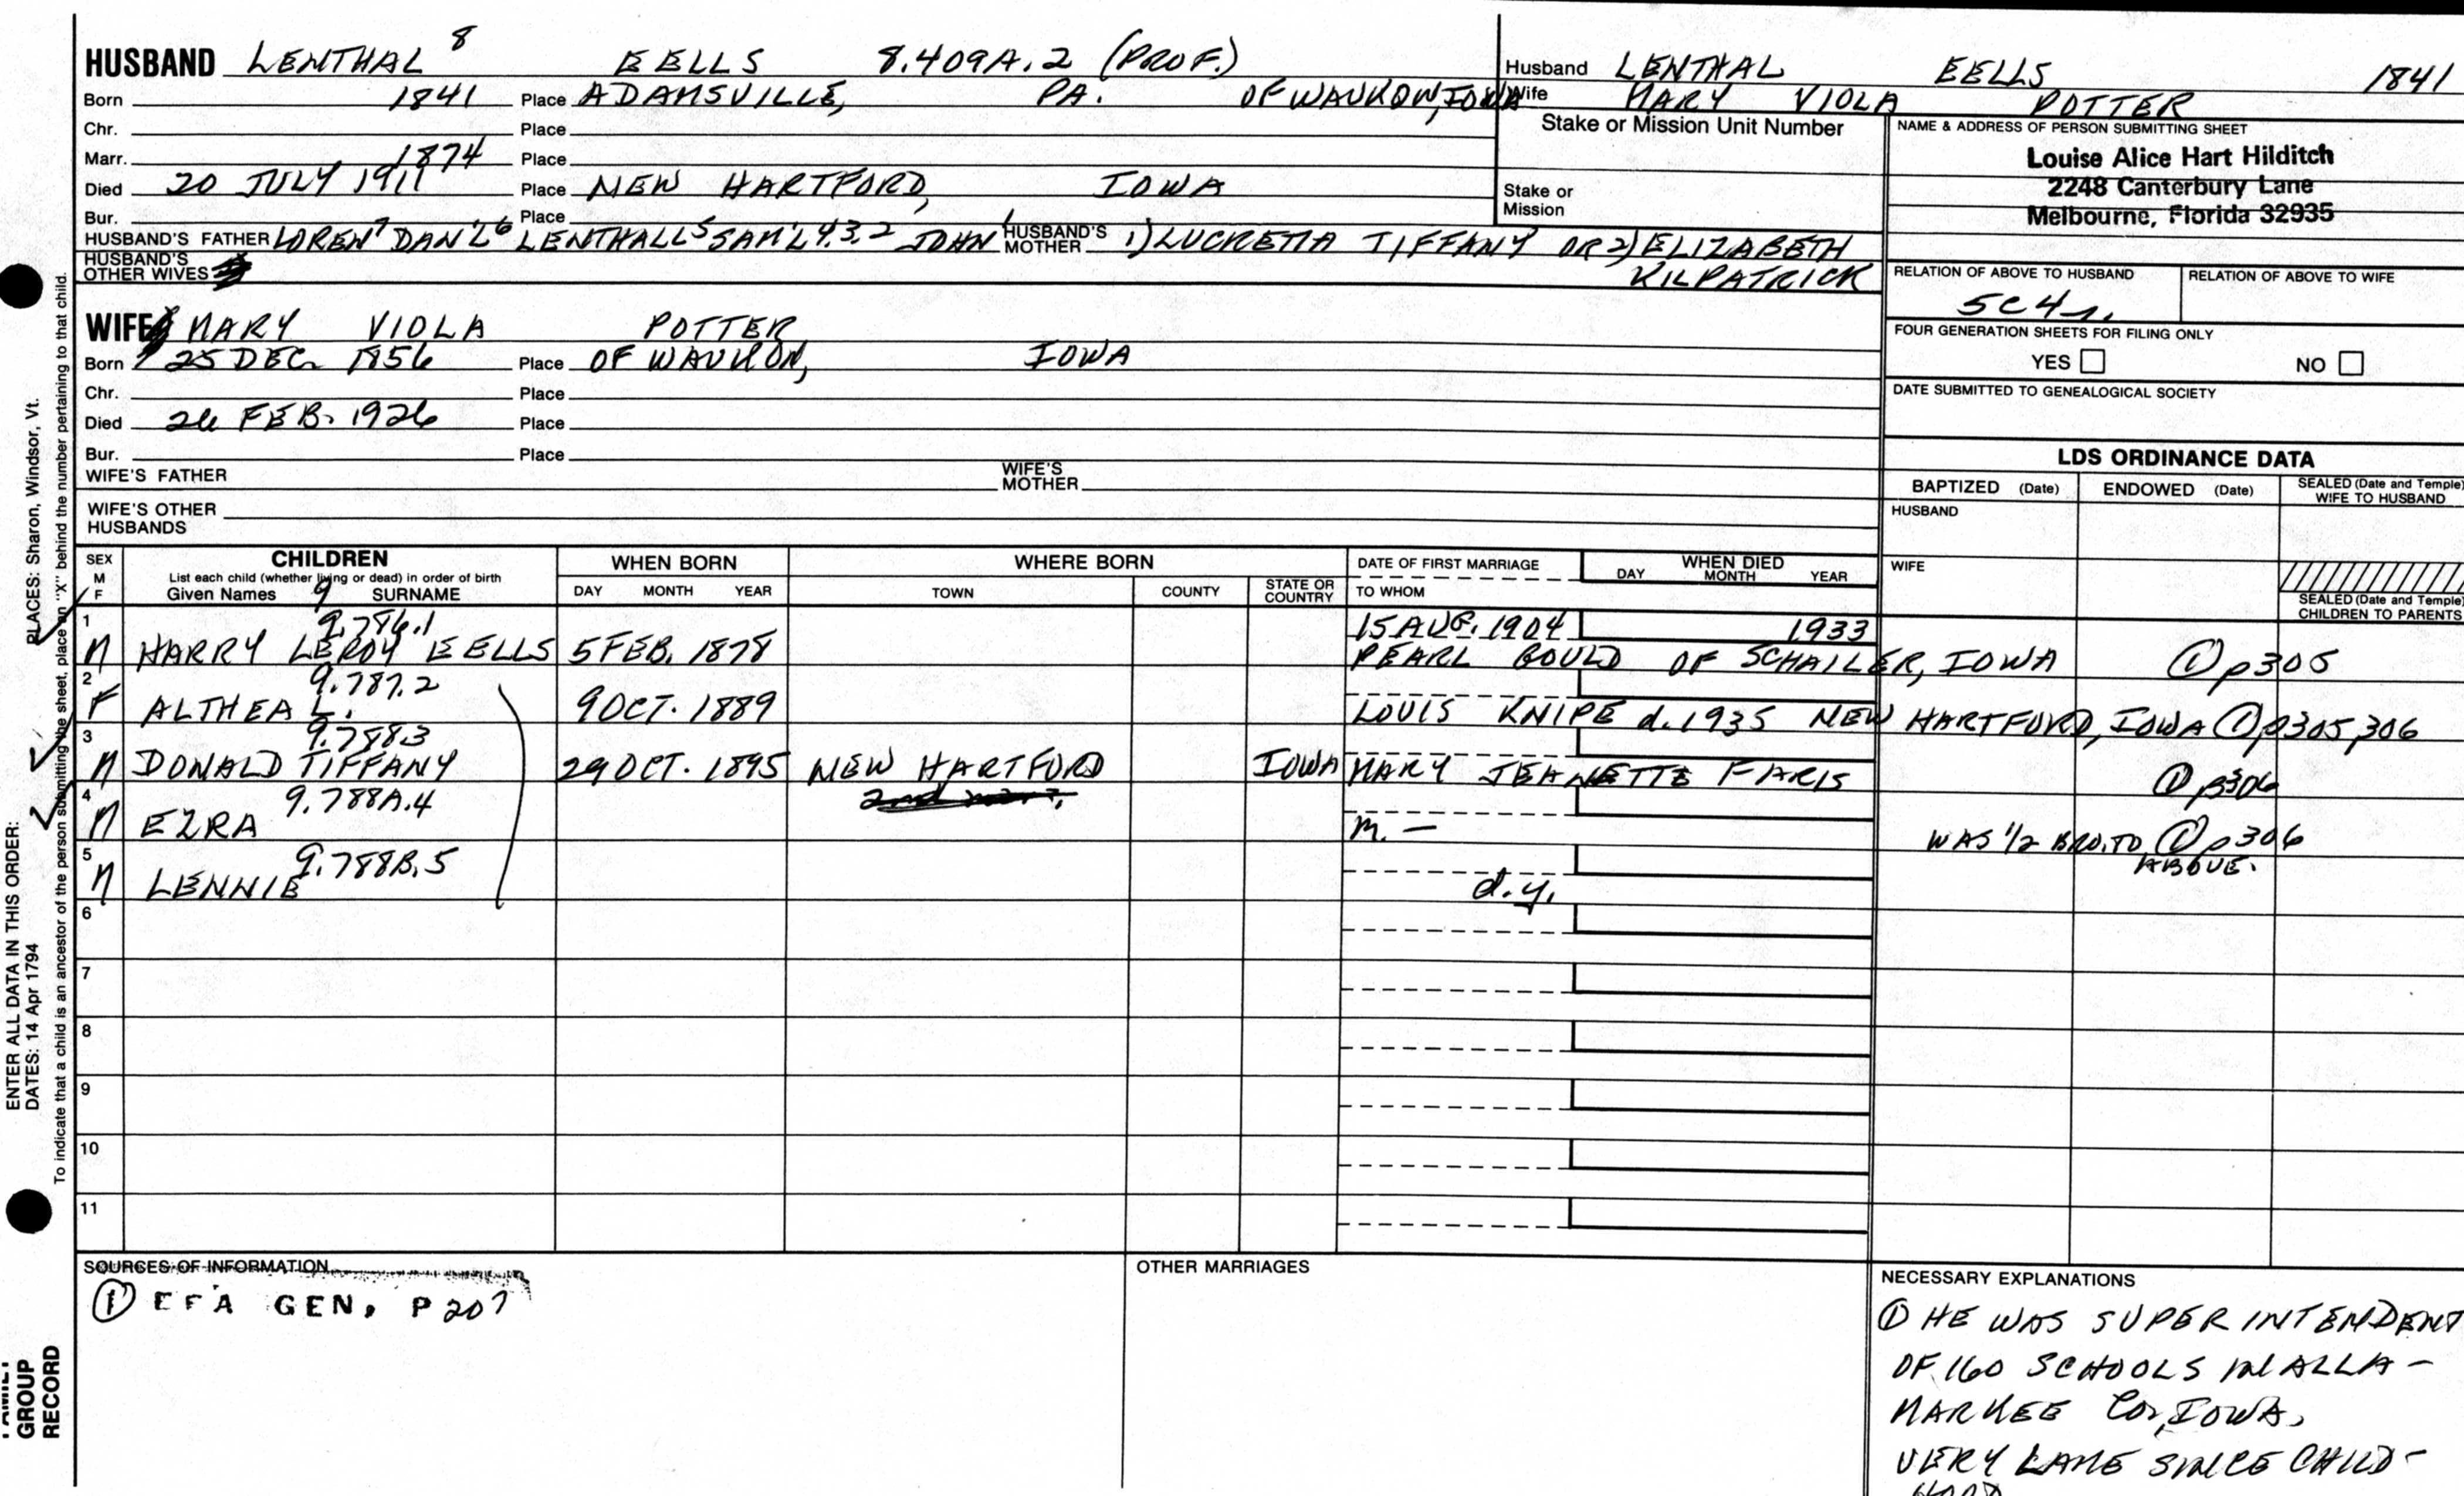 HUSBAND LENTHAL 8 EELLS 8.409A.2 (PROF.)
Born 1841 Place ADAMSVILLE, PA. OF WAUKON, IOWA
Chr. Place
Marr. 1874 Place
Died 20 JULY 1911 Place NEW HARTFORD, IOWA
Bur. Place
HUSBAND'S FATHER LOREN 7 DAN'L 6 LENTHALL 5 SAM'L 4.3.2 JOHN 1 HUSBAND'S MOTHER 1) LUCRETIA TIFFANY OR 2) ELIZABETH KILPATRICK
HUSBAND'S OTHER WIVES
WIFE MARY VIOLA POTTER
Born 25 DEC. 1856 Place OF WAUKON, IOWA
Chr. Place
Died 26 FEB. 1926 Place
Bur. Place
WIFE'S FATHER WIFE'S MOTHER
WIFE'S OTHER HUSBANDS
Husband LENTHAL EELLS 1841
Wife MARY VIOLA POTTER
Stake or Mission Unit Number
Stake or Mission
NAME & ADDRESS OF PERSON SUBMITTING SHEET
Louise Alice Hart Hilditch
2248 Canterbury Lane
Melbourne, Florida 32935
RELATION OF ABOVE TO HUSBAND RELATION OF ABOVE TO WIFE
5C4r.
FOUR GENERATION SHEETS FOR FILING ONLY
YES NO
DATE SUBMITTED TO GENEALOGICAL SOCIETY
LDS ORDINANCE DATA
BAPTIZED (Date) ENDOWED (Date) SEALED (Date and Temple) WIFE TO HUSBAND
HUSBAND
WIFE
SEALED (Date and Temple) CHILDREN TO PARENTS
SEX M F
CHILDREN
List each child (whether living or dead) in order of birth
Given Names 9 SURNAME
WHEN BORN
DAY MONTH YEAR
WHERE BORN
TOWN COUNTY STATE OR COUNTRY
DATE OF FIRST MARRIAGE
TO WHOM
WHEN DIED
DAY MONTH YEAR
1 9.786.1 15 AUG. 1904 1933
M HARRY LEROY EELLS 5 FEB. 1878 PEARL GOULD OF SCHALLER, IOWA ① p305
2 9.787.2
F ALTHEA L. 9 OCT. 1889 LOUIS KNIPE d. 1935 NEW HARTFORD, IOWA ① p305, 306
3 9.788.3
M DONALD TIFFANY 29 OCT. 1895 NEW HARTFORD IOWA MARY JEANETTE FARIS ① p306
4 9.788A.4
M EZRA m. — WAS 1/2 BRO. TO ABOVE. ① p306
5 9.788B.5
M LENNIE d.y.
6
7
8
9
10
11
SOURCES OF INFORMATION
① EFA GEN. P 207
OTHER MARRIAGES
NECESSARY EXPLANATIONS
① HE WAS SUPERINTENDENT
OF 160 SCHOOLS IN ALLA-
MAKEE Co, IOWA,
VERY LAME SINCE CHILD-
HOOD
ENTER ALL DATA IN THIS ORDER:
DATES: 14 Apr 1794 PLACES: Sharon, Windsor, Vt.
To indicate that a child is an ancestor of the person submitting the sheet, place an "X" behind the number pertaining to that child.
FAMILY
GROUP
RECORD